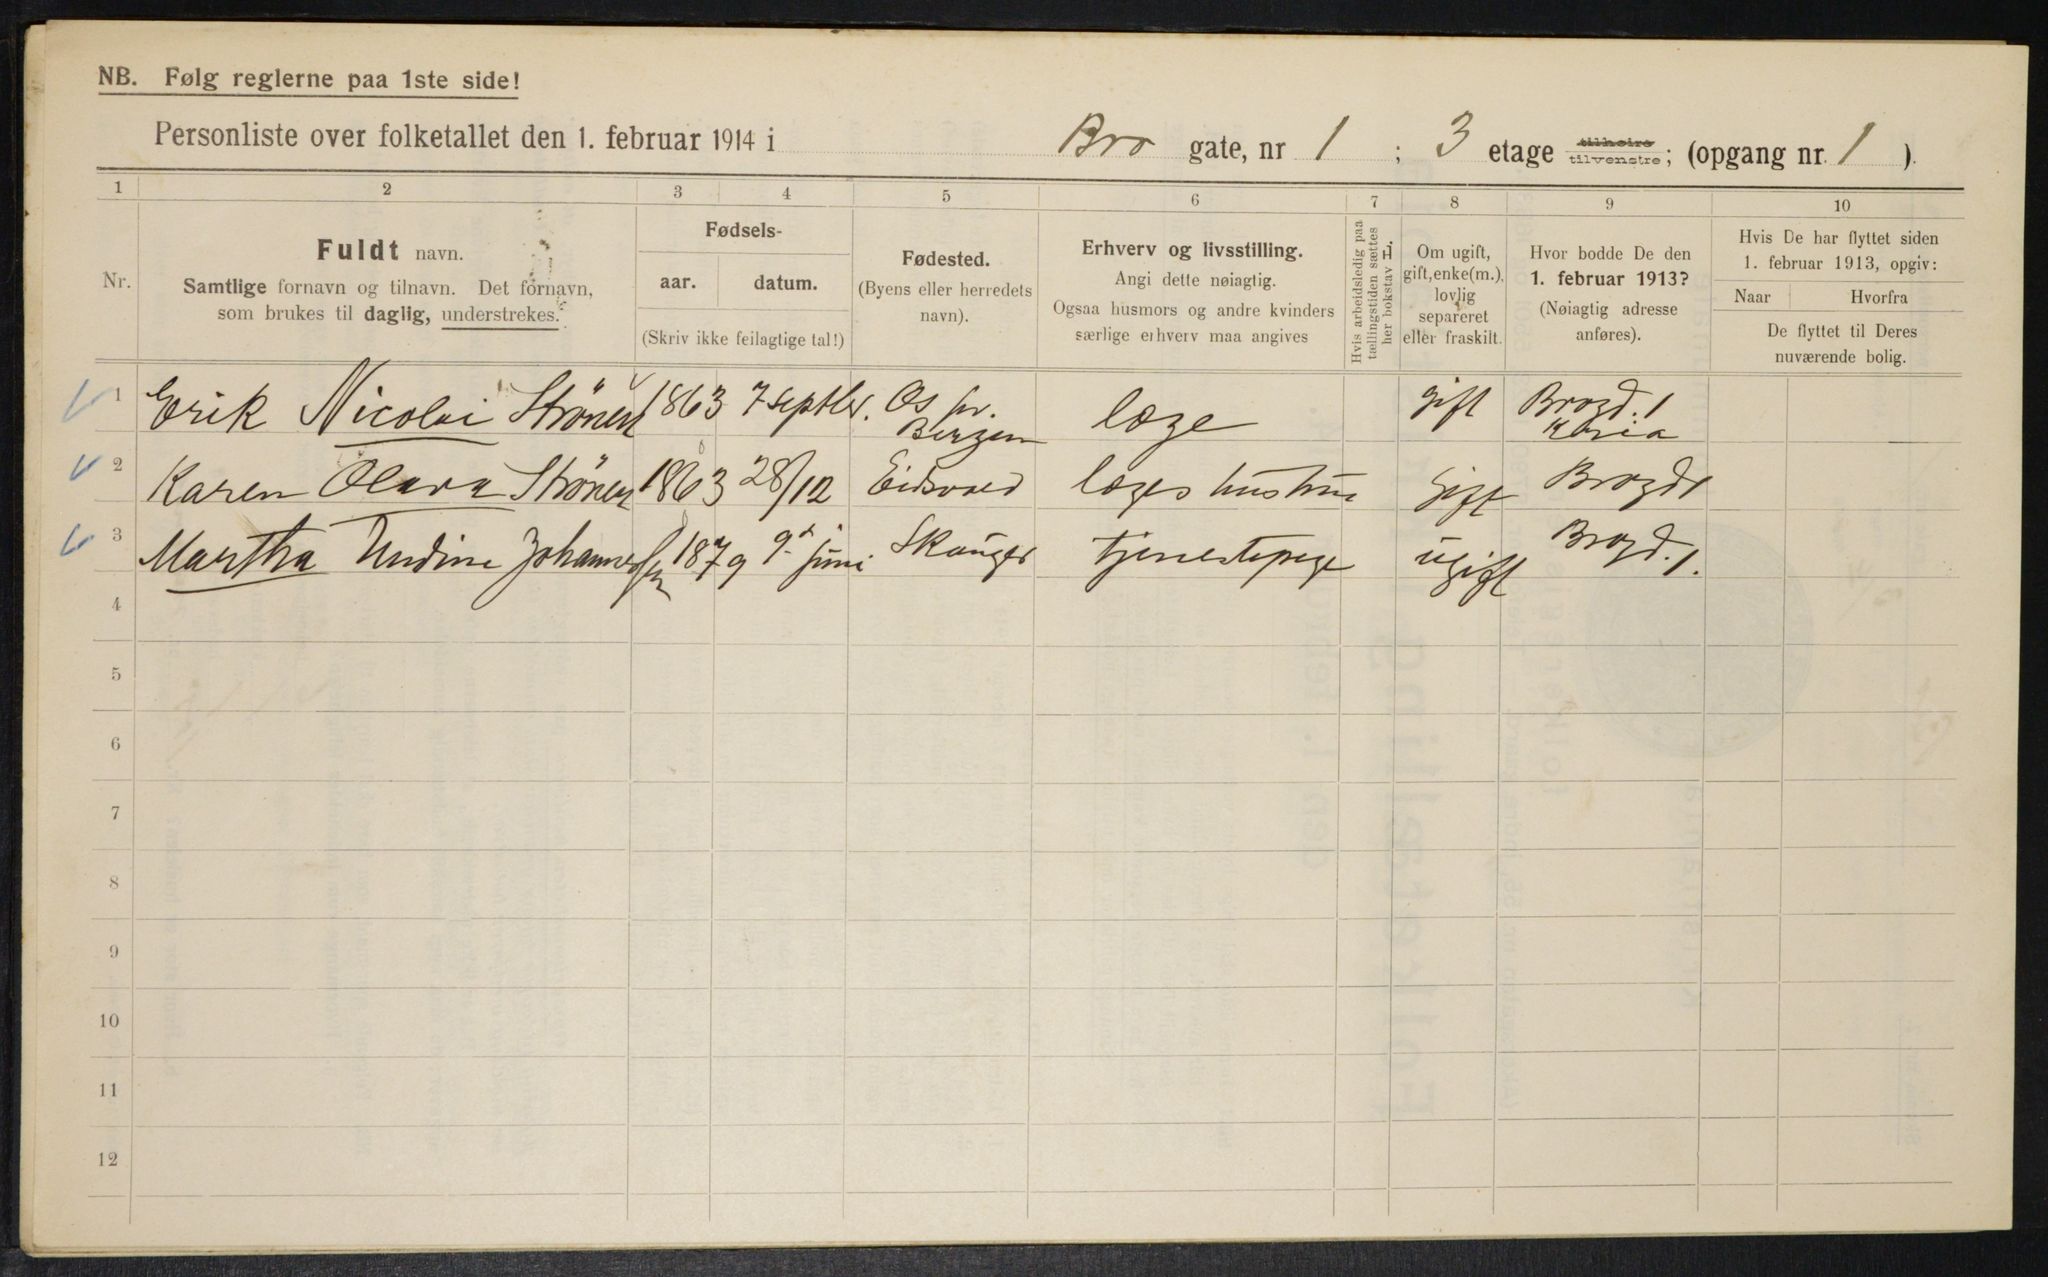 NB. Følg reglerne paa 1ste side!
Personliste over folketallet den 1. februar 1914 i Bro gate, nr 1 ; 3 etage tilhøire tilvenstre; (opgang nr. 1 ).
1 2 3 4 5 6 7 8 9 10
Nr.
Fuldt navn.
Samtlige fornavn og tilnavn. Det fornavn,
som brukes til daglig, understrekes.
Fødsels-
aar. datum.
(Skriv ikke feilagtige tal!)
Fødested.
(Byens eller herredets
navn).
Erhverv og livsstilling.
Angi dette nøiagtig.
Ogsaa husmors og andre kvinders
særlige erhverv maa angives
Hvis arbeidsledig paa
tællingstiden sættes
her bokstav L.
Om ugift,
gift, enke(m.),
lovlig
separeret
eller fraskilt.
Hvor bodde De den
1. februar 1913?
(Nøiagtig adresse
anføres).
Hvis De har flyttet siden
1. februar 1913, opgiv:
Naar Hvorfra
De flyttet til Deres
nuværende bolig.
1 Erik Nicolai 1863 7 septbr. Os pr. Bergen læge gift Brogd. 1 Kristia
2 Karen Olava 1863 28/12 Eidsvold læges hustru gift Brogd 1
3 Martha Undine Johannessen 1879 9d juni Skauger tjenestepige ugift Brogd. 1.
4
5
6
7
8
9
10
11
12